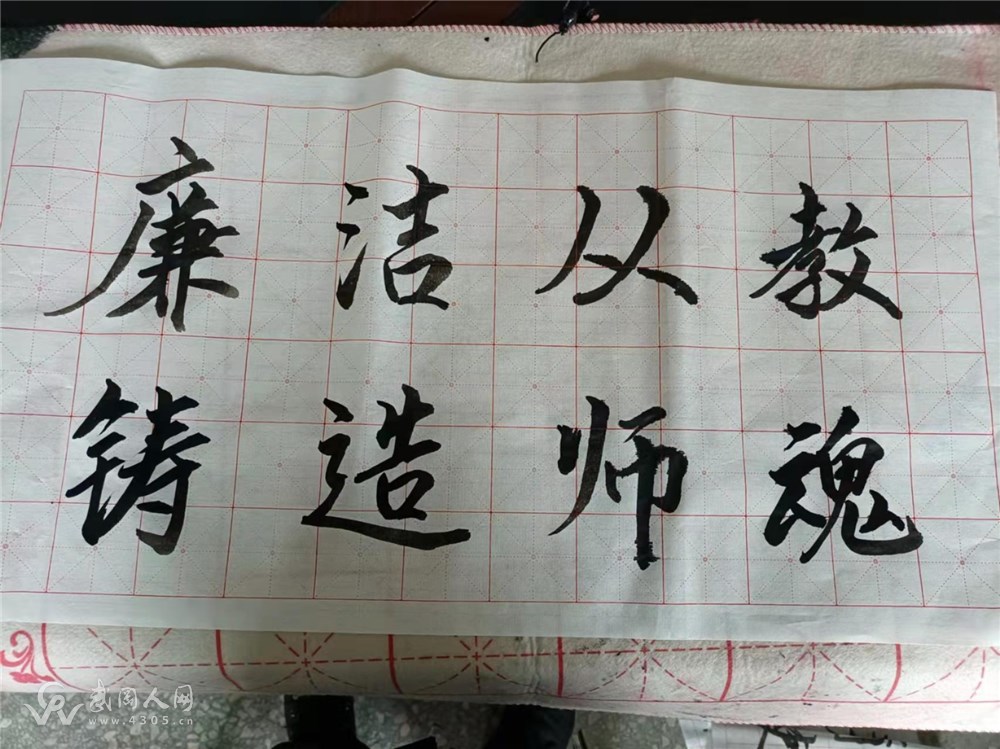 廉洁从教
铸造师魂
武冈人网
www.4305.cn